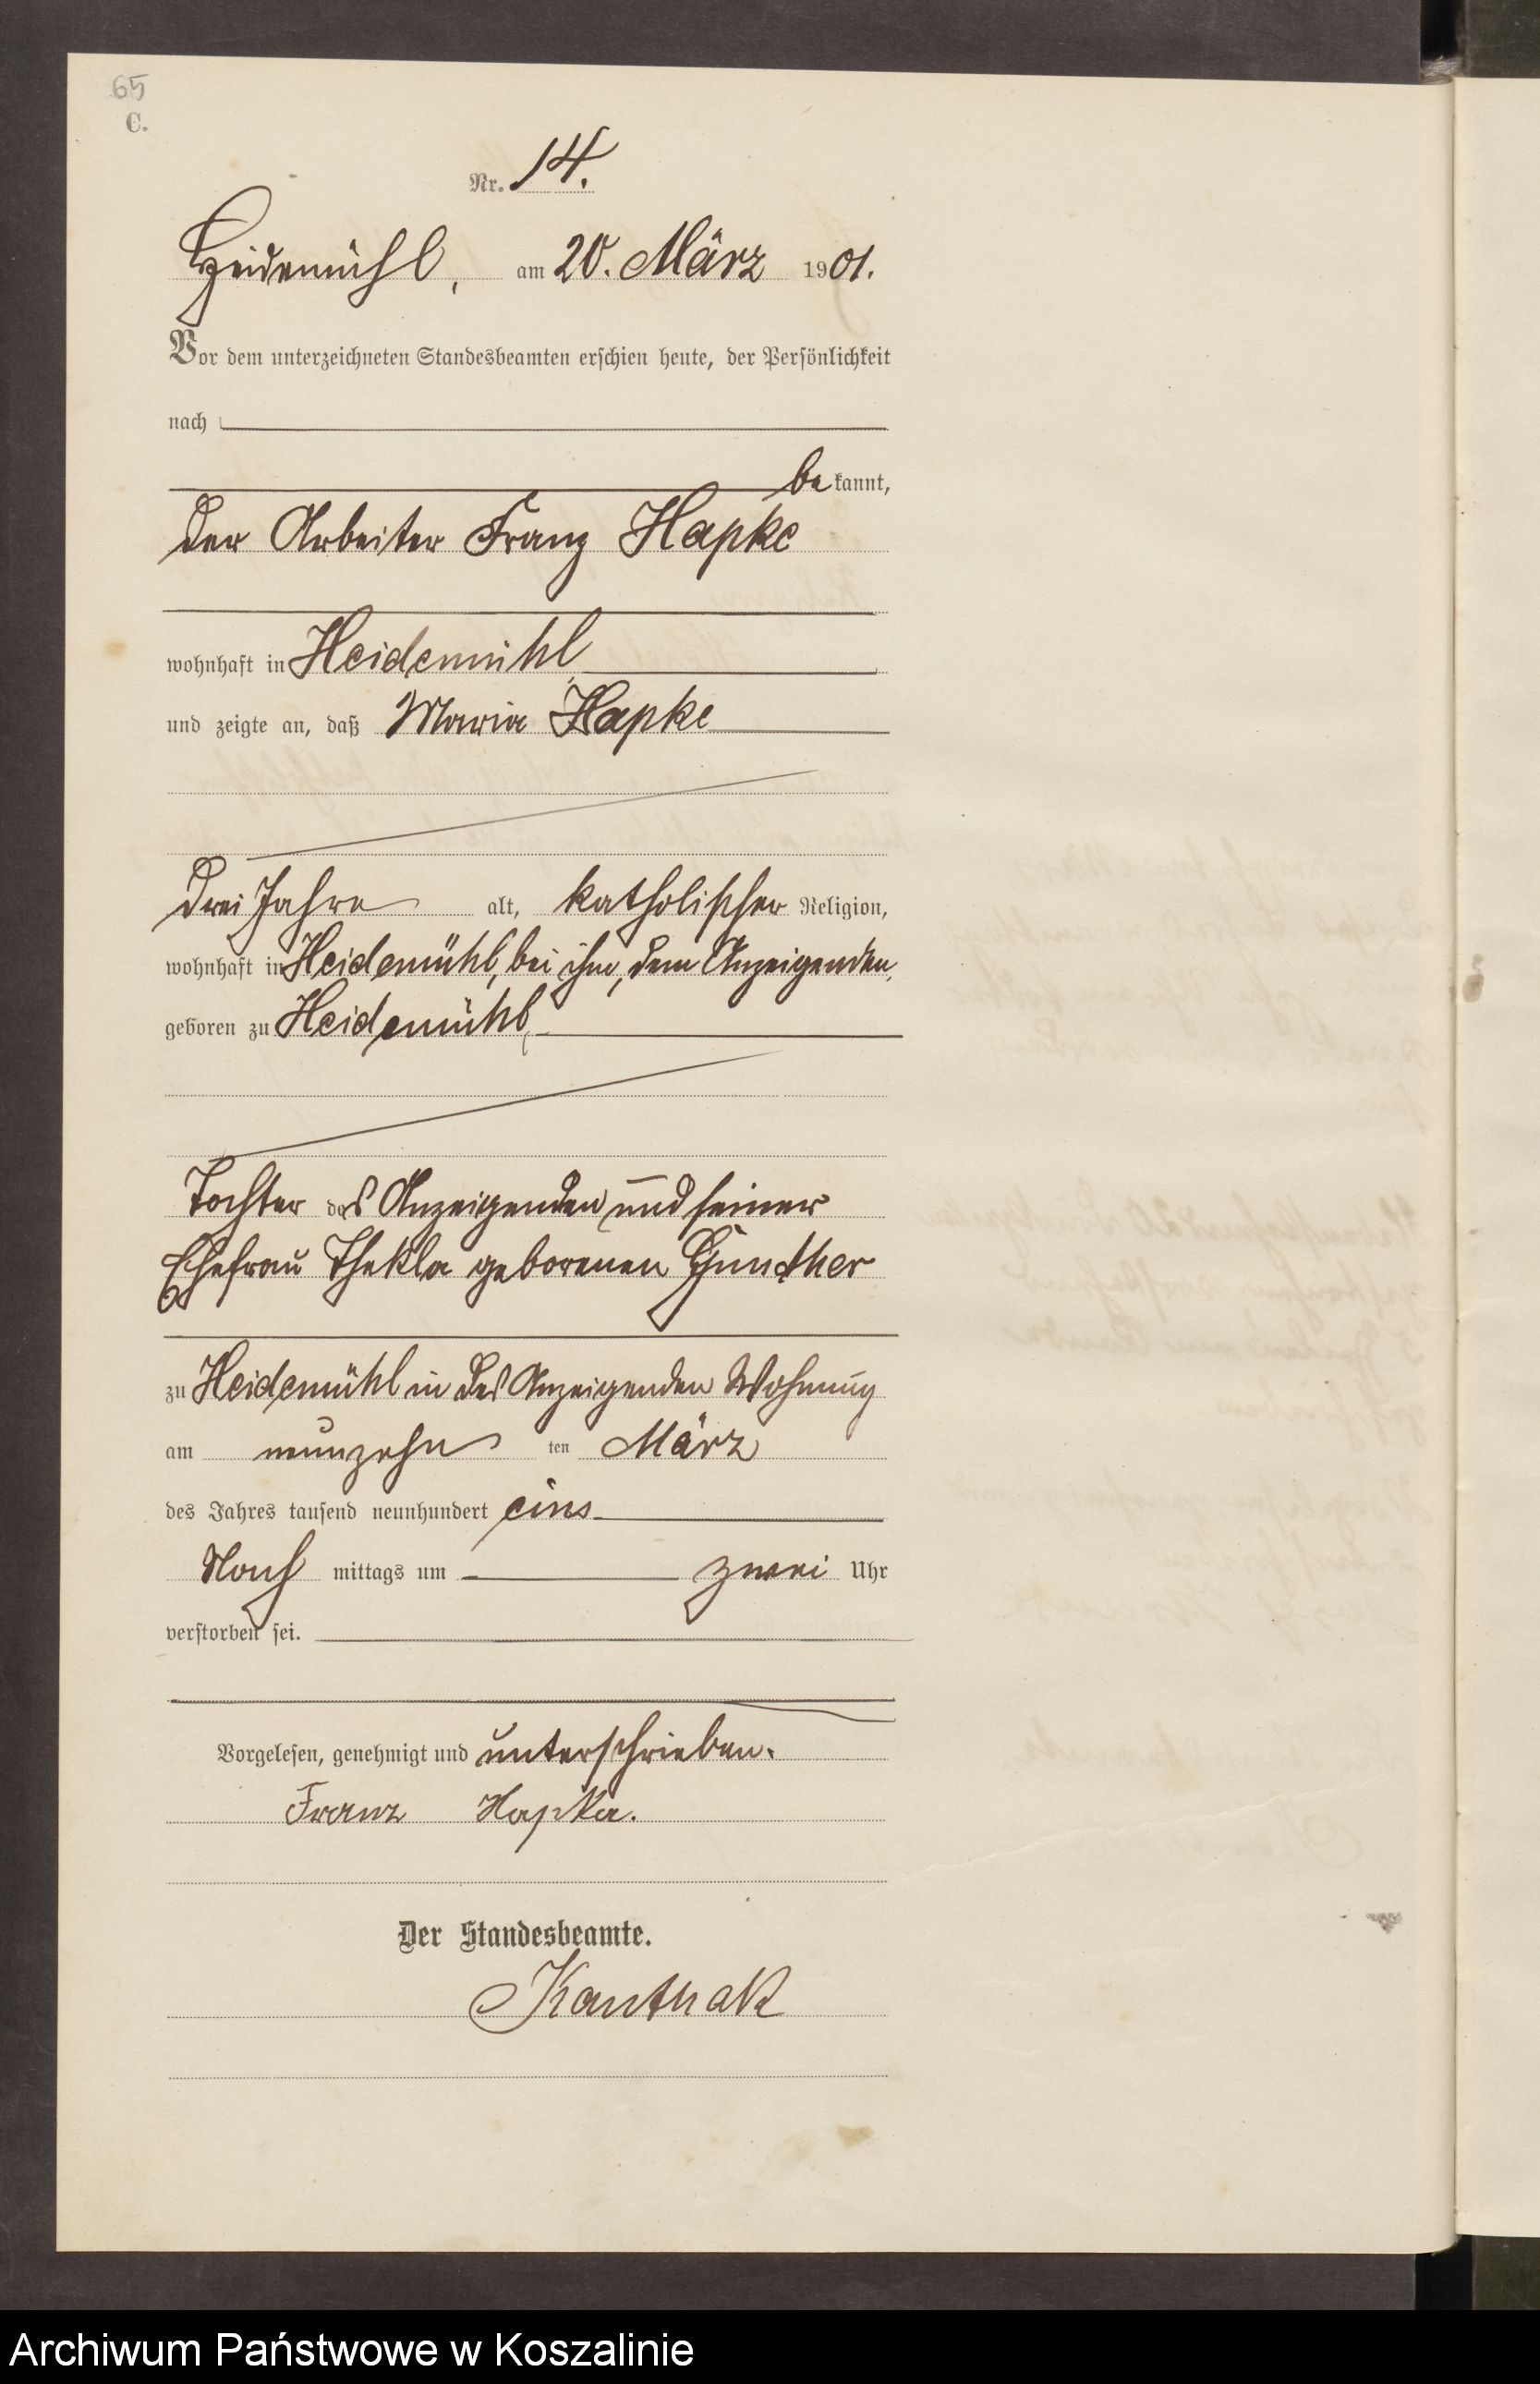 65
C.
Nr. 14.
Heidemühl, am 20. März 1901.
Vor dem unterzeichneten Standesbeamten erschien heute, der Persönlichkeit
nach
bekannt,
der Arbeiter Franz Hapke
wohnhaft in Heidemühl
und zeigte an, daß Maria Hapke
drei Jahre alt, katholischer Religion,
wohnhaft in Heidemühl, bei ihm, dem Anzeigenden,
geboren zu Heidemühl,
Tochter des Anzeigenden und seiner
Ehefrau Thekla geborenen Günther
zu Heidemühl in des Anzeigenden Wohnung
am neunzehn ten März
des Jahres tausend neunhundert eins
Nach mittags um zwei Uhr
verstorben sei.
Vorgelesen, genehmigt und unterschrieben.
Franz Hapke.
Der Standesbeamte.
Kanthak
Archiwum Państwowe w Koszalinie